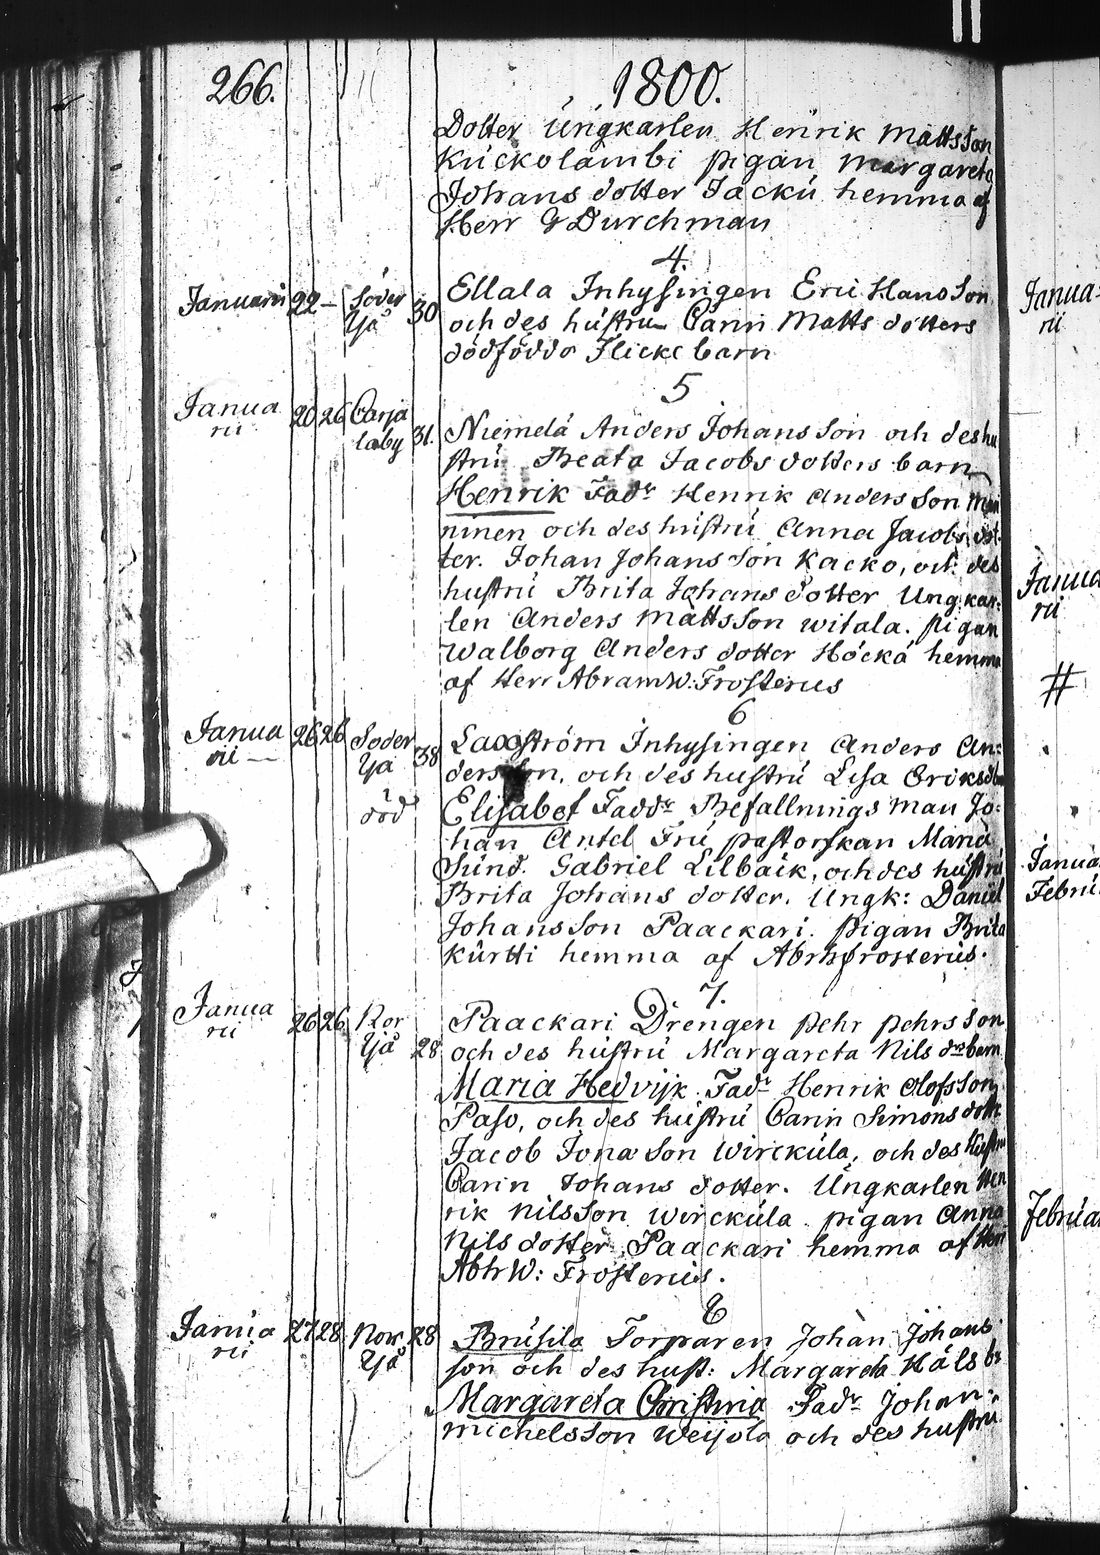 266. 1800.
Dotter Ungkarlen Henrik Mattsson
Kuckolambi pigan Margareta
Johans dotter Jacku hemma af
Herr G Durchman
4.
Januarii 22 — Söder 30 Ellala Inhysingen Eric Hansson
Yjå och des hustru Carin Matts dotters
dödfödda Flicke barn
5
Janua 20 26 Carja 31. Niemelä Anders Johansson och des hu
rii laby stru Beata Jacobs dotters barn
Henrik Fadr Henrik Andersson
ninen och des hustru Anna Jacobs dot
ter. Johan Johansson Kacko, och des
hustru Brita Johans dotter Ungkar:
len Anders Mattsson witala. pigan
Walborg Anders dotter Höckä hemma
af Herr Abram W: Frosterus
6
Janua 26 26 Söder 38 Laxström Inhysingen Anders An:
rii — Yjå dersson, och des hustru Lisa Eriks
död Elisabet Faddr Befallnings man Jo:
han Antel Fru pastorskan Maria
Sund. Gabriel Lilbäck, och des hustru
Brita Johans dotter. Ungk: Daniel
Johansson Paackari. pigan Brita
Kurtti hemma af Abrh frosterus.
7.
Janua 26 26 Nor 28 Paackari Drengen pehr pehrsson
rii Yjå och des hustru Margareta Nils drs barn
Maria Hedvijk Fadr Henrik Olofsson
Paso, och des hustru Carin Simons dottr
Jacob Jonasson Wirckula, och des hustru
Carin Johans dotter. Ungkarlen Hen
rik Nilsson Wirckula pigan Anna
Nils dotter Paackari hemma af Herr
Abh W: Frosterus.
8
Janua 27 28 Nor 28 Brusila Torparen Johan Johans
rii Yjå son och des hust: Margareta Häls br
Margareta Christina Fadr Johan
michelsson Weijola och des hustru
Janua:
rii
Janua
rii
#
Janua
Febru
Februa